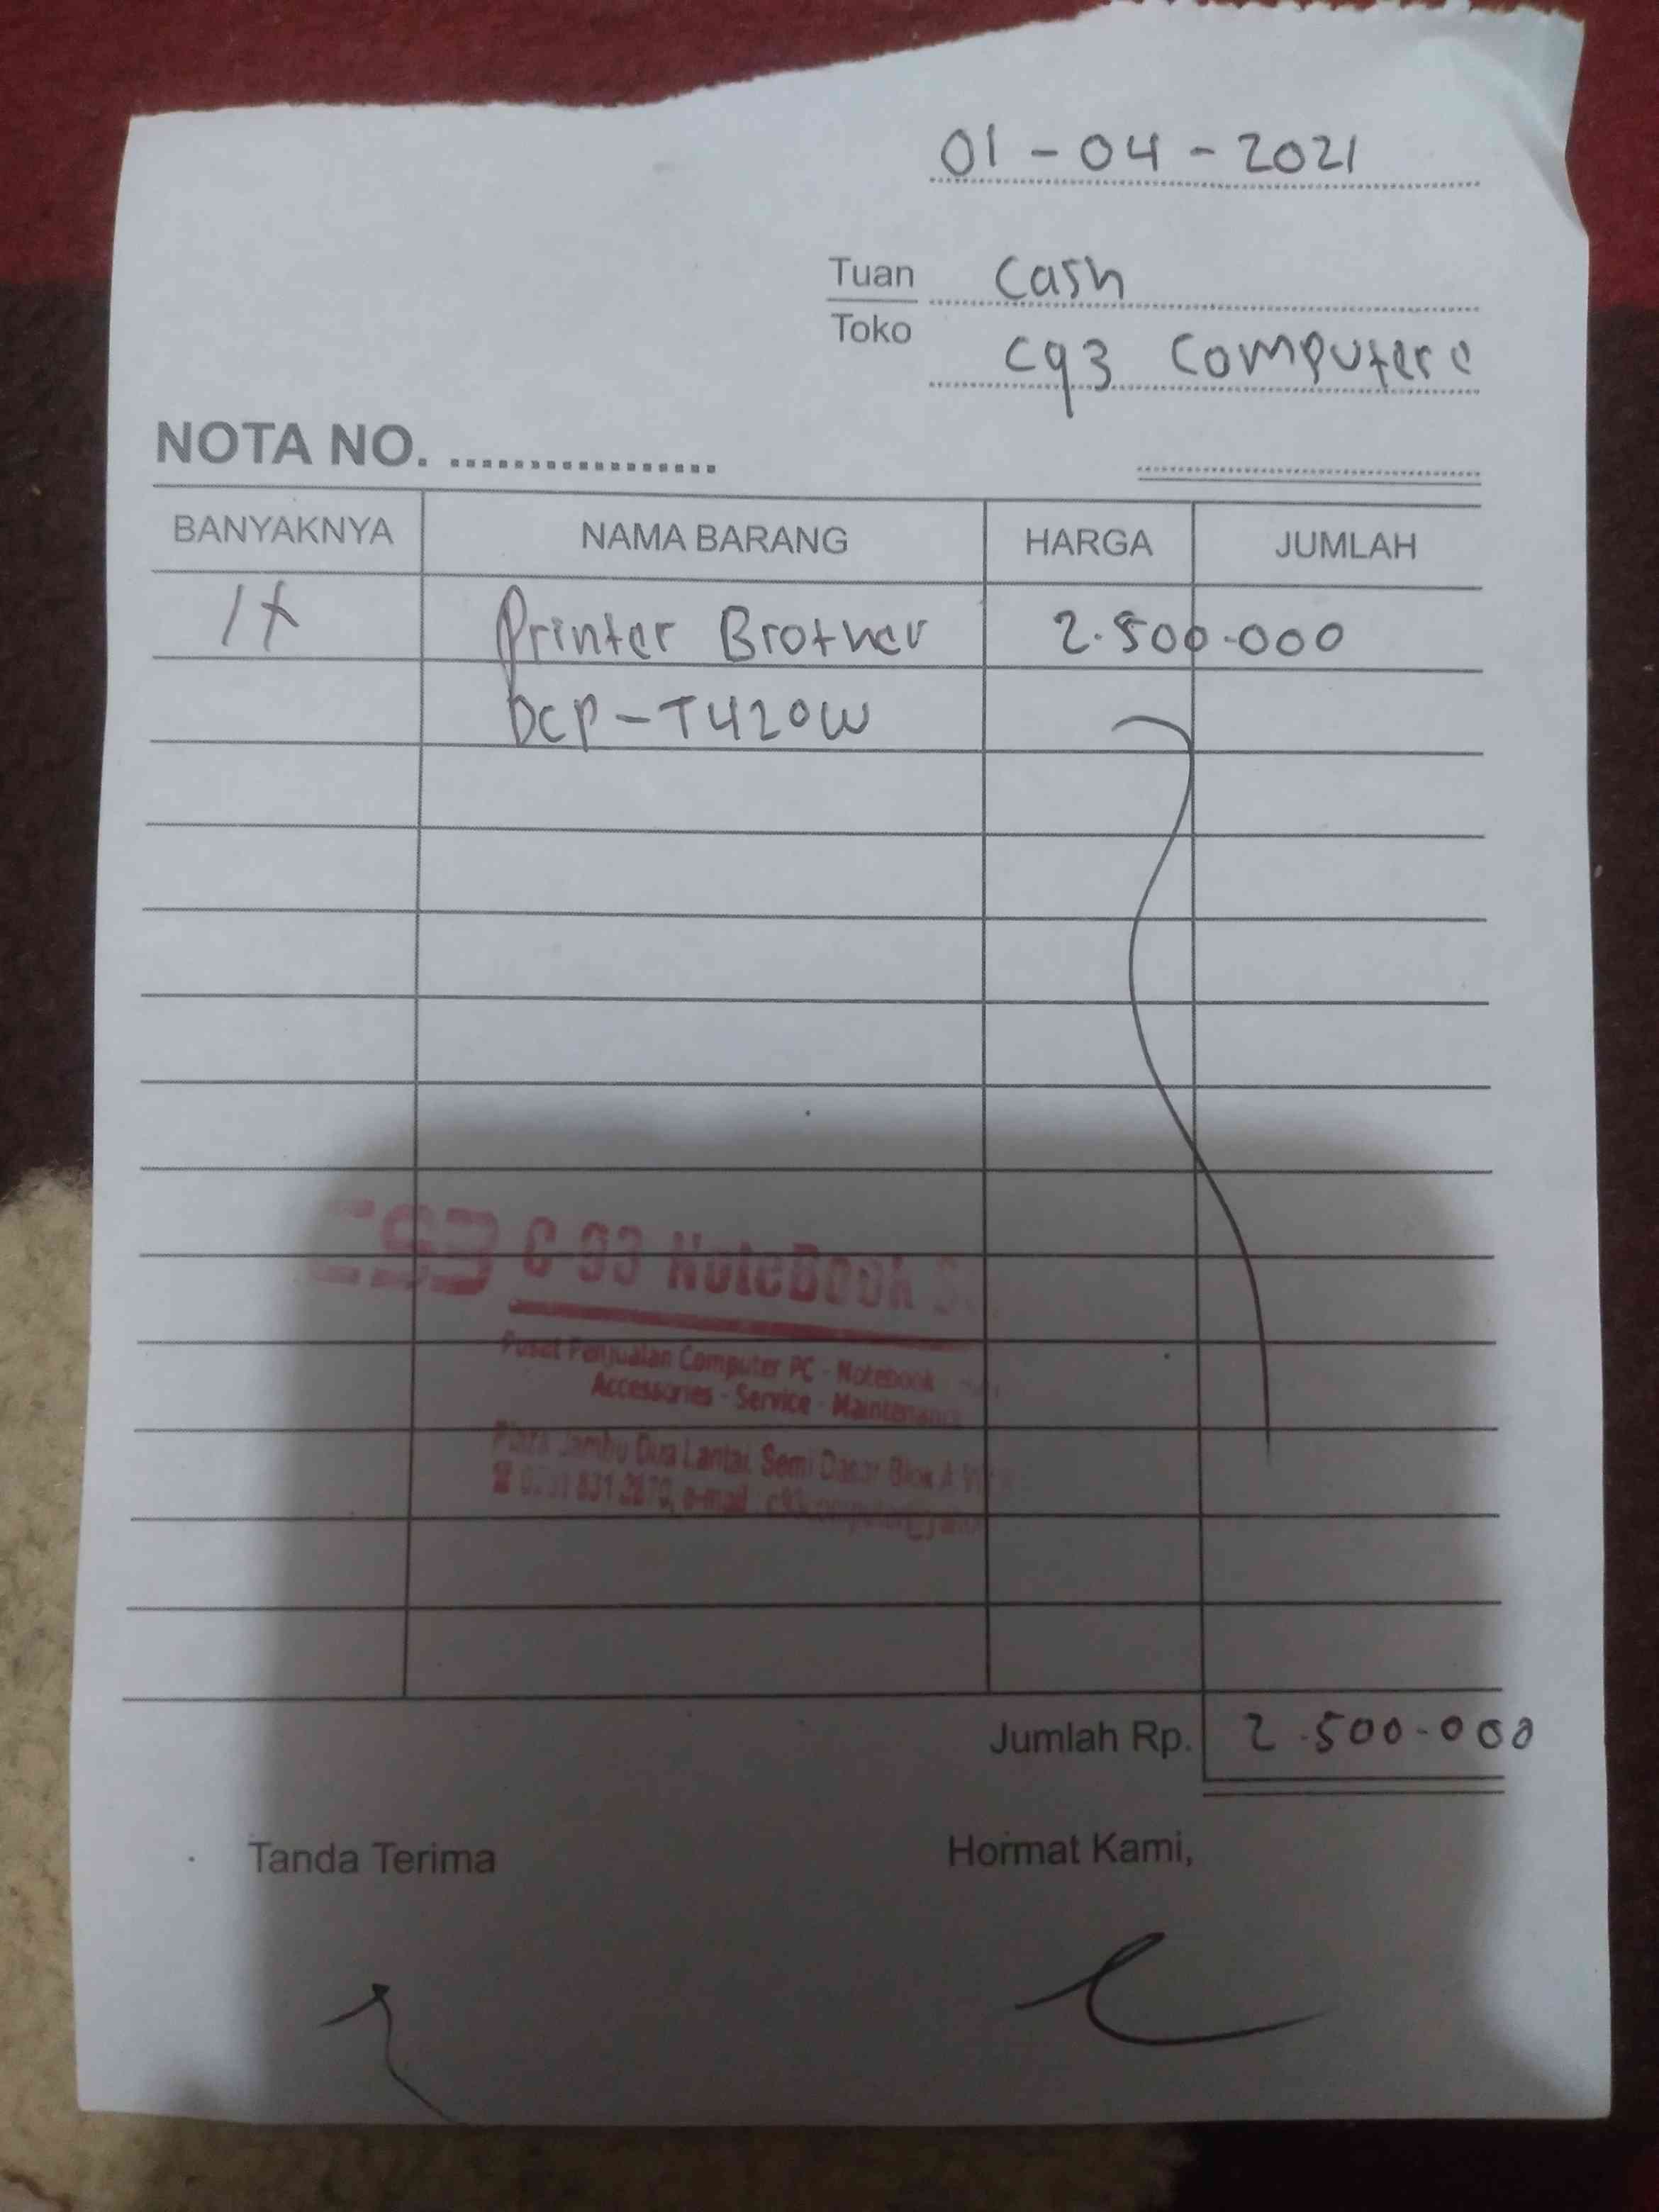 01 - 04 - 2021
Tuan Cash
Toko
C93 Computer
NOTA NO. .................
BANYAKNYA NAMA BARANG HARGA JUMLAH
1x Printer Brother 2.500.000
DCP-T420W
C93 C-93 NoteBook
Pusat Penjualan Computer PC - Notebook
Accessories - Service - Maintenance
Plaza Jambu Dua Lantai Semi Dasar Blok A
e-mail :
Jumlah Rp. 2.500.000
Tanda Terima Hormat Kami,